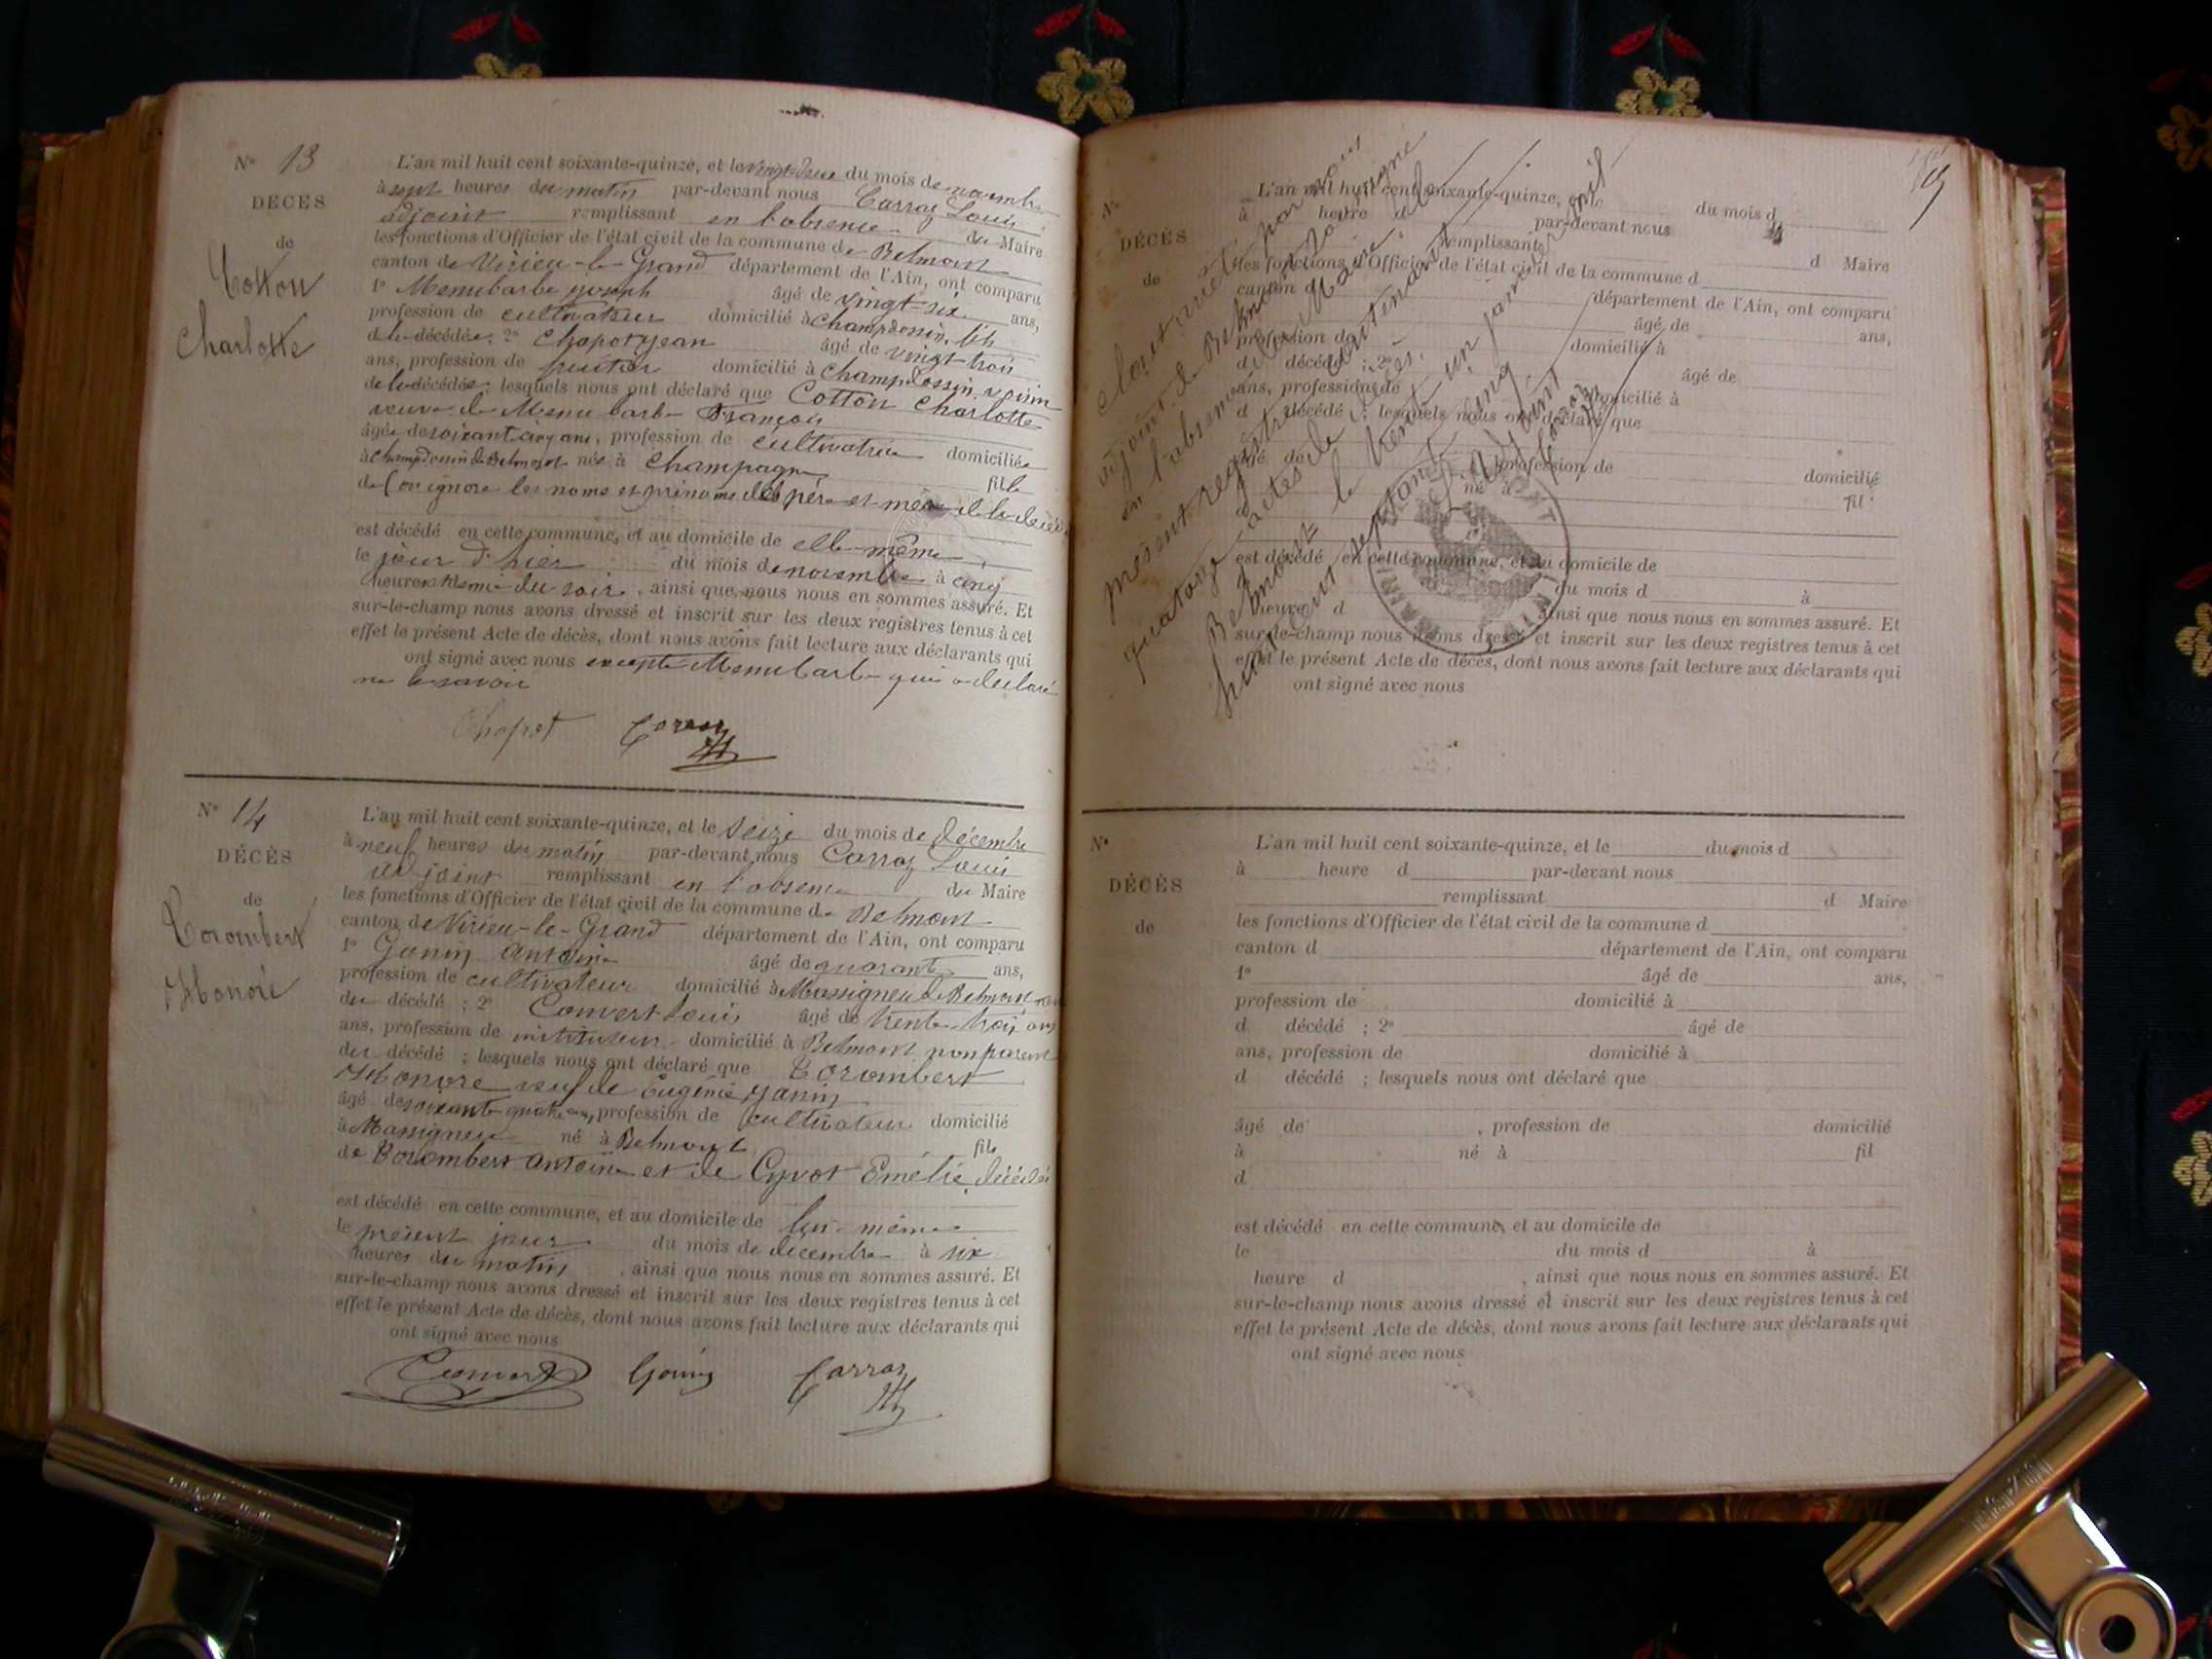 N° 13
DÉCÈS
de
Cotton
Charlotte
L'an mil huit cent soixante-quinze, et le vingt-deux du mois de novembre
à sept heures du matin par-devant nous Carraz Louis
adjoint remplissant en l'absence du Maire
les fonctions d'Officier de l'état civil de la commune de Belmont
canton de Virieu-le-Grand département de l'Ain, ont comparu
1° Menubarbe joseph âgé de vingt-six ans,
profession de cultivateur domicilié à Champdossin, fils
de la décédée; 2° Chapot jean âgé de vingt-trois
ans, profession de domicilié à Champdossin, voisin
de la décédée; lesquels nous ont déclaré que Cotton Charlotte
veuve de Menubarbe François
âgée de soixante cinq ans, profession de cultivatrice domiciliée
à Champdossin de Belmont née à Champagne fille
de (on ignore les noms et prénoms des père et mère de la décédée
est décédé en cette commune, et au domicile de elle-même
le jour d'hier du mois de novembre à cinq
heures et demie du soir, ainsi que nous nous en sommes assuré. Et
sur-le-champ nous avons dressé et inscrit sur les deux registres tenus à cet
effet le présent Acte de décès, dont nous avons fait lecture aux déclarants qui
ont signé avec nous excepté Menubarbe qui a déclaré
ne le savoir
Chapot Carraz
N° 14
DÉCÈS
de
Corombert
Honoré
L'an mil huit cent soixante-quinze, et le seize du mois de décembre
à neuf heures du matin par-devant nous Carraz Louis
adjoint remplissant en l'absence du Maire
les fonctions d'Officier de l'état civil de la commune de Belmont
canton de Virieu-le-Grand département de l'Ain, ont comparu
1° Janin Antoine âgé de quarante ans,
profession de cultivateur domicilié à Massigneu de Belmont
du décédé; 2° Convert Louis âgé de trente-trois ans
ans, profession de instituteur domicilié à Belmont non parent
du décédé; lesquels nous ont déclaré que Corombert
Honoré veuf de Eugénie Janin
âgé de soixante quatre ans, profession de cultivateur domicilié
à Massigneu né à Belmont fils
de Corombert Antoine et de Cyvot Emélie, décédés
est décédé en cette commune, et au domicile de lui-même
le présent jour du mois de décembre à six
heures du matin, ainsi que nous nous en sommes assuré. Et
sur-le-champ nous avons dressé et inscrit sur les deux registres tenus à cet
effet le présent Acte de décès, dont nous avons fait lecture aux déclarants qui
ont signé avec nous
Convert Janin Carraz
19
N°
DÉCÈS
de
L'an mil huit cent soixante-quinze, et le du mois d
à heure d par-devant nous
remplissant d Maire
les fonctions d'Officier de l'état civil de la commune d
canton d département de l'Ain, ont comparu
âgé de ans,
profession de domicilié à
d décédé ; 2° âgé de
ans, profession de domicilié à
d décédé ; lesquels nous ont déclaré que
âgé de profession de domicilié
né à fil
d
est décédé en cette commune, et au domicile de
du mois d à
heure d ainsi que nous nous en sommes assuré. Et
sur-le-champ nous avons dressé et inscrit sur les deux registres tenus à cet
effet le présent Acte de décès, dont nous avons fait lecture aux déclarants qui
ont signé avec nous
Clos et arrêté par nous
adjoint de Belmont soussigné
en l'absence du Maire, le
présent registre contenant
quatorze actes de décès.
Belmont le trente un janvier mil
huit cent septante cinq
L'Adjoint
Carraz
N°
DÉCÈS
de
L'an mil huit cent soixante-quinze, et le du mois d
à heure d par-devant nous
remplissant d Maire
les fonctions d'Officier de l'état civil de la commune d
canton d département de l'Ain, ont comparu
1° âgé de ans,
profession de domicilié à
d décédé ; 2° âgé de
ans, profession de domicilié à
d décédé ; lesquels nous ont déclaré que
âgé de , profession de domicilié
à né à fil
d
est décédé en cette commune, et au domicile de
le du mois d à
heure d , ainsi que nous nous en sommes assuré. Et
sur-le-champ nous avons dressé et inscrit sur les deux registres tenus à cet
effet le présent Acte de décès, dont nous avons fait lecture aux déclarants qui
ont signé avec nous